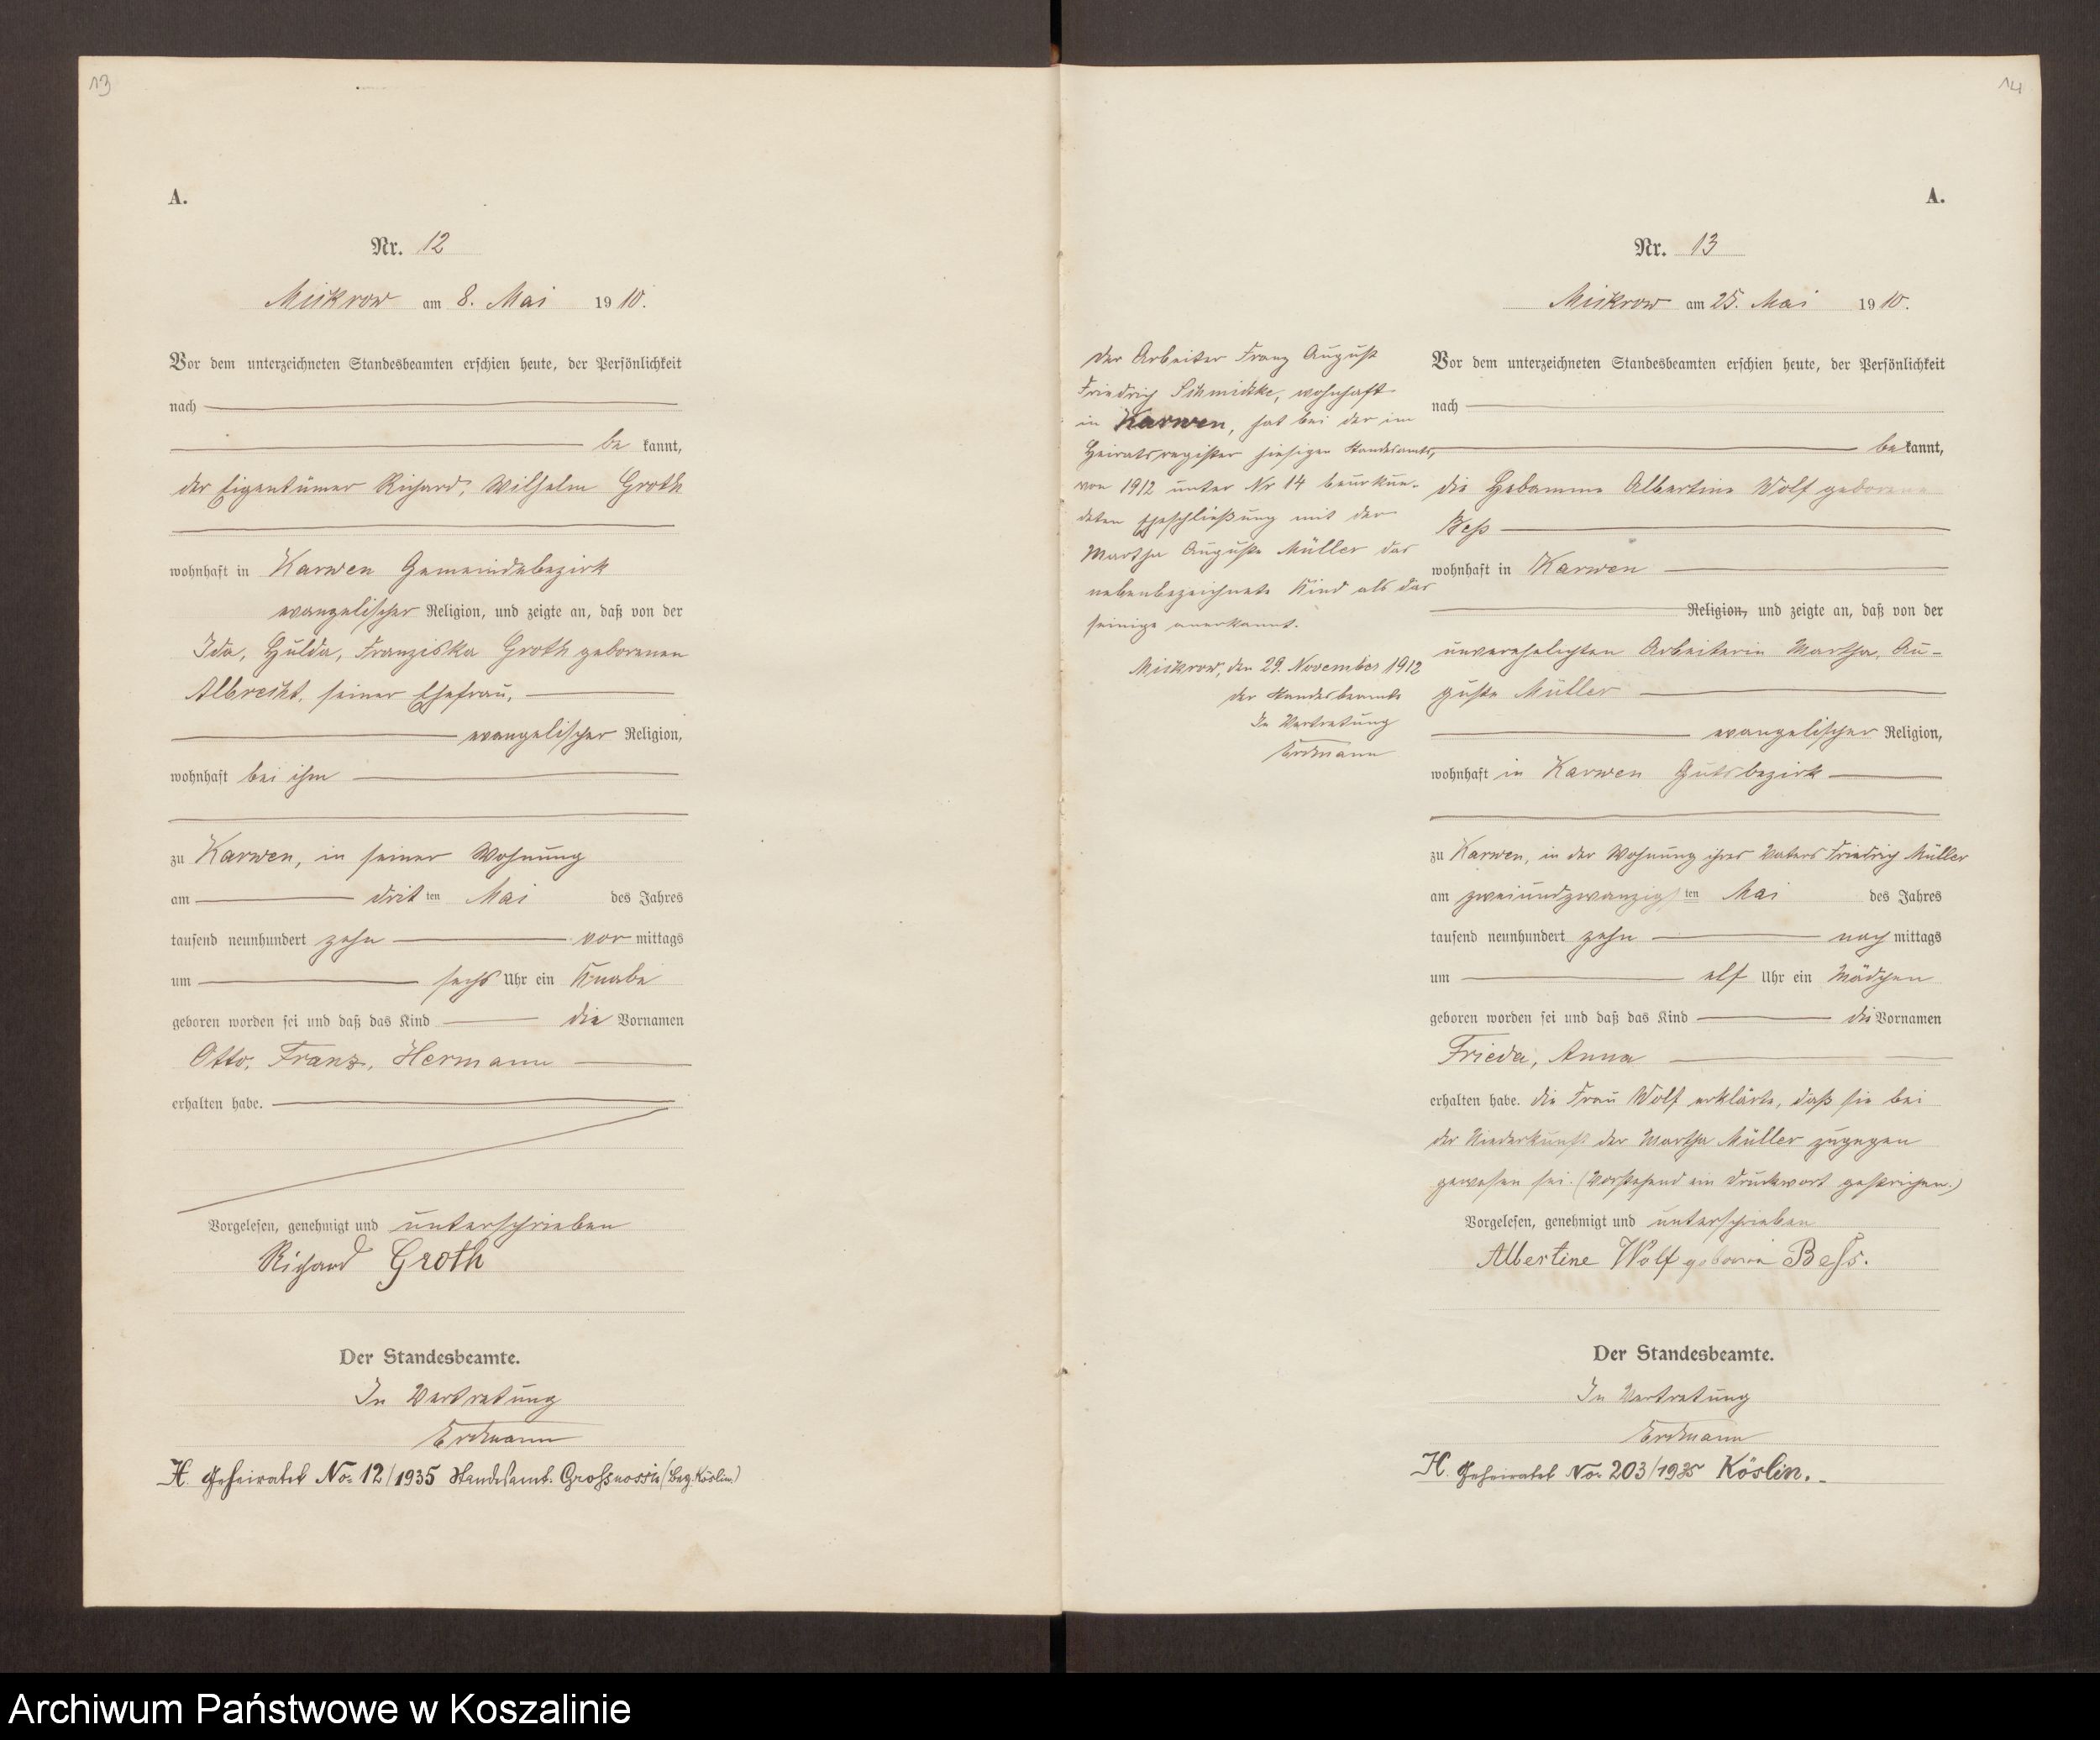 13
A.
Nr. 12
Mickrow am 8. Mai 1910.
Vor dem unterzeichneten Standesbeamten erschien heute, der Persönlichkeit
nach
be kannt,
der Eigentümer Richard, Wilhelm Groth
wohnhaft in Karwen Gemeindebezirk
evangelischer Religion, und zeigte an, daß von der
Ida, Hulda, Franziska Groth geborenen
Albrecht, seiner Ehefrau,
evangelischer Religion,
wohnhaft bei ihm
zu Karwen, in seiner Wohnung
am dritten Mai des Jahres
tausend neunhundert zehn vormittags
um sechs Uhr ein Knabe
geboren worden sei und daß das Kind die Vornamen
Otto, Franz, Hermann
erhalten habe.
Vorgelesen, genehmigt und unterschrieben
Richard Groth
Der Standesbeamte.
In Vertretung
Erdmann
H. Geheiratet No. 12/1935 Standesamt. Grossnossin (Bez. Köslin)
14
A.
Nr. 13
Mickrow am 25. Mai 1910.
Der Arbeiter Franz August
Friedrich Schmidtke, wohnhaft
in Karwen, hat bei der im
Heiratsregister hiesigen Standesamts,
von 1912 unter Nr 14 beurkun-
deten Eheschließung mit der
Martha Auguste Müller das
nebenbezeichnete Kind als das
seinige anerkannt.
Mickrow, den 29. November 1912
Der Standesbeamte
In Vertretung
Erdmann
Vor dem unterzeichneten Standesbeamten erschien heute, der Persönlichkeit
nach
bekannt,
die Hebamme Albertine Wolf geborene
Beß
wohnhaft in Karwen
Religion, und zeigte an, daß von der
unverehelichten Arbeiterin Martha, Au-
guste Müller
evangelischer Religion,
wohnhaft in Karwen Gutsbezirk
zu Karwen, in der Wohnung ihres Vaters Friedrich Müller
am zweiundzwanzigsten Mai des Jahres
tausend neunhundert zehn nachmittags
um elf Uhr ein Mädchen
geboren worden sei und daß das Kind die Vornamen
Frieda, Anna
erhalten habe. Die Frau Wolf erklärte, daß sie bei
der Niederkunft der Martha Müller zugegen
gewesen sei. (Vorstehend ein Druckwort gestrichen.)
Vorgelesen, genehmigt und unterschrieben
Albertine Wolf geborene Beß.
Der Standesbeamte.
In Vertretung
Erdmann
H. Geheiratet No. 203/1935 Köslin.
Archiwum Państwowe w Koszalinie